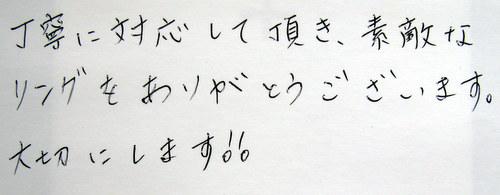 丁寧に対応して頂き、素敵な
リングをありがとうございます。
大切にします!!